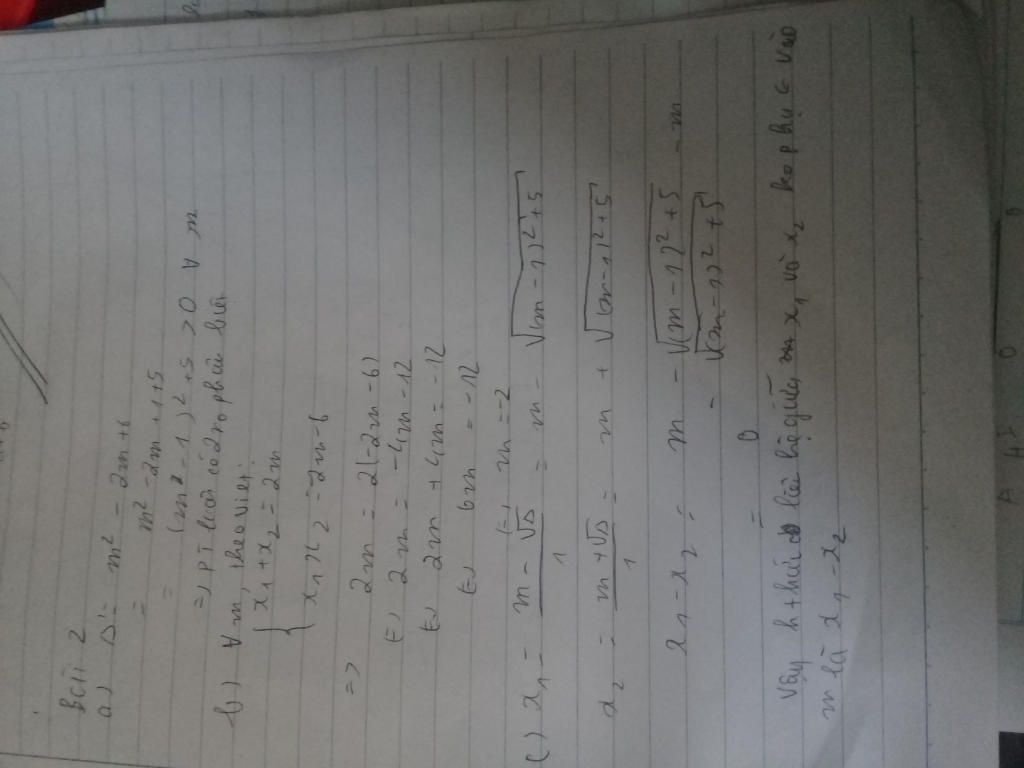 Bài 2
a) Δ' = m² - 2m + 6
= m² - 2m + 1 + 5
= (m - 1)² + 5 > 0 ∀ m
=> PT luôn có 2 no phân biệt
b) ∀ m, theo viet
{ x₁ + x₂ = 2m
x₁ x₂ = 2m - 6
=> 2m = 2(-2m - 6)
(=) 2m = -4m - 12
(=) 2m + 4m = -12
(=) 6m = -12
(=) m = -2
c) x₁ = (m - √Δ)/1 = m - √((m - 1)² + 5)
x₂ = (m + √Δ)/1 = m + √((m - 1)² + 5)
x₁ - x₂ = m - √((m - 1)² + 5) - m
- √((m - 1)² + 5)
= 0
Vậy hệ giữa x₁ và x₂ ko phụ ∈ vào
m là x₁ - x₂